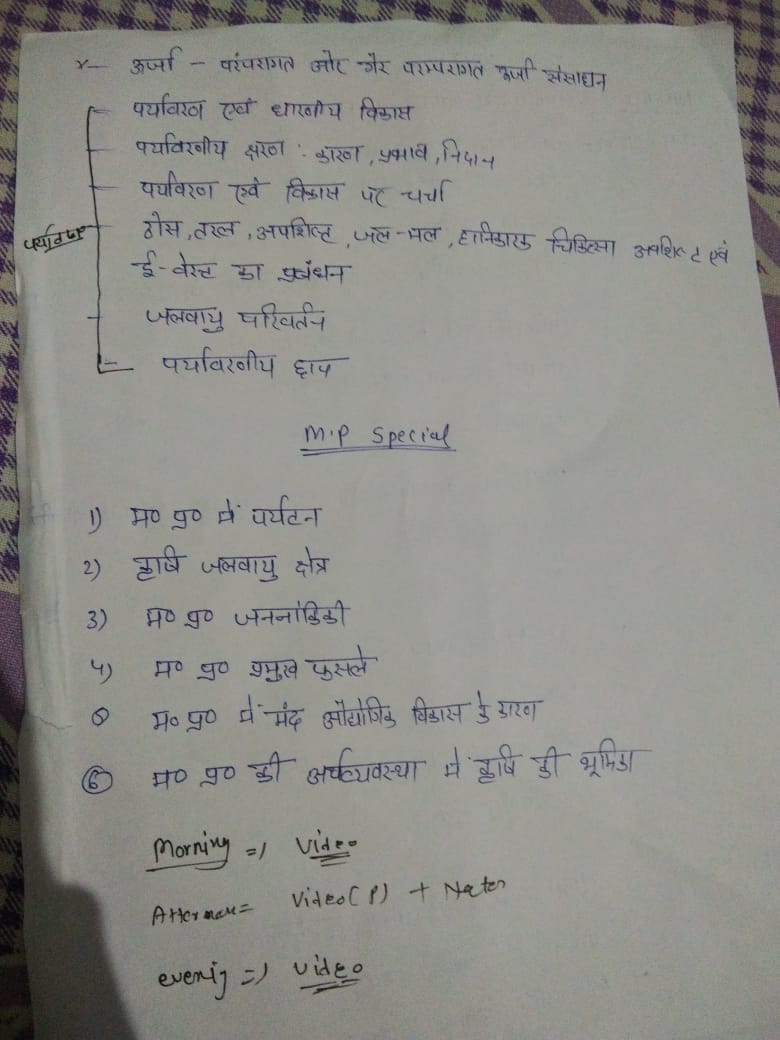 ४— ऊर्जा – परंपरागत और गैर परम्परागत ऊर्जा संसाधन
पर्यावरण एवं धारणीय विकास
पर्यावरणीय क्षरण : कारण, प्रभाव, निदान
पर्यावरण एवं विकास पर चर्चा
पर्यावरण
ठोस, तरल, अपशिष्ट, जल-मल, हानिकारक चिकित्सा अपशिष्ट एवं
ई-वेस्ट का प्रबंधन
जलवायु परिवर्तन
पर्यावरणीय छाप
M.P Special
1) म० प्र० में पर्यटन
2) कृषि जलवायु क्षेत्र
3) म० प्र० जननांकिकी
4) म० प्र० प्रमुख फसले
म० प्र० में मंद औद्योगिक विकास के कारण
6 म० प्र० की अर्थव्यवस्था में कृषि की भूमिका
Morning => Video
= Video (P) +
evenig => video